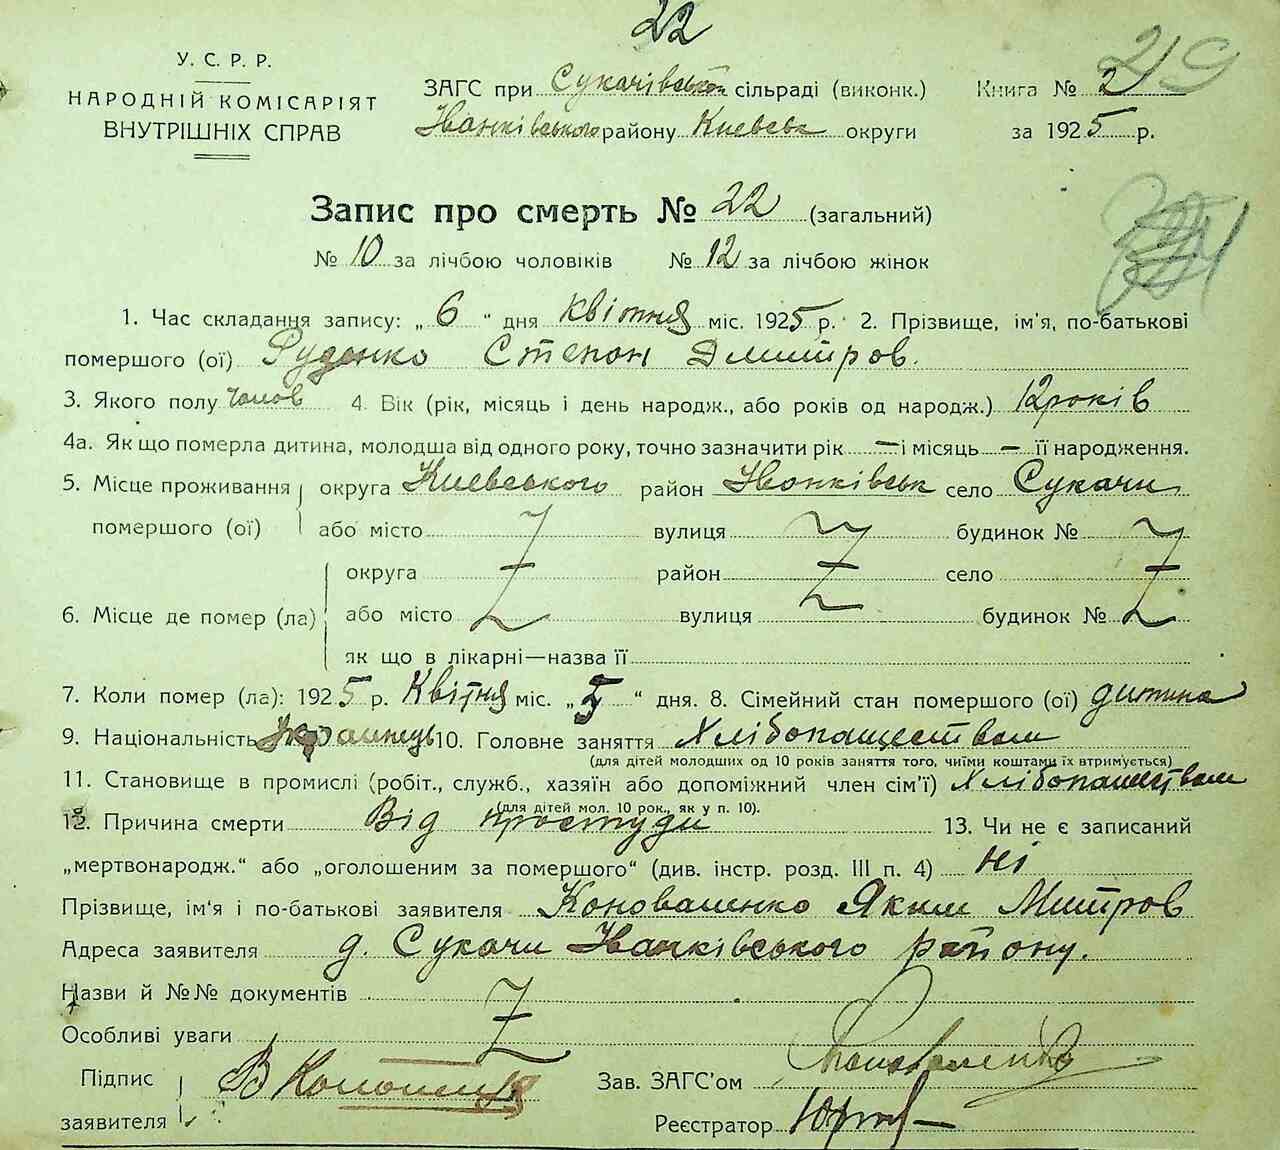 22
219
У. С. Р. Р.
НАРОДНІЙ КОМІСАРІЯТ
ВНУТРІШНІХ СПРАВ
ЗАГС при Сукачівській сільраді (виконк.) Книга № 2
Іванківського району Киевськ округи за 1925 р.
Запис про смерть № 22 (загальний)
№ 10 за лічбою чоловіків № 12 за лічбою жінок
1. Час складання запису: „ 6 “ дня квітня міс. 1925 р. 2. Прізвище, ім'я, по-батькові
помершого (ої) Руденко Степан Дмитров.
3. Якого полу чолов 4. Вік (рік, місяць і день народж., або років од народж.) 12 років
4а. Як що померла дитина, молодша від одного року, точно зазначити рік — і місяць — її народження.
5. Місце проживання округа Киевського район Іванківськ село Сукачи
помершого (ої) або місто вулиця будинок №
округа район село
6. Місце де помер (ла) або місто вулиця будинок №
як що в лікарні—назва її
7. Коли помер (ла): 1925 р. Квітня міс. „ 5 “ дня. 8. Сімейний стан помершого (ої) дитина
9. Національність Украинець 10. Головне заняття Хлібопашеством
(для дітей молодших од 10 років заняття того, чиїми коштами їх втримується)
11. Становище в промислі (робіт., служб., хазяїн або допоміжний член сім'ї) Хлібопашеством
(для дітей мол. 10 рок., як у п. 10).
12. Причина смерти Від простуди 13. Чи не є записаний
„мертвонародж.“ або „оголошеним за помершого“ (див. інстр. розд. III п. 4) Ні
Прізвище, ім'я і по-батькові заявителя Коноваленко Яким Митров
Адреса заявителя д. Сукачи Іванківського району.
Назви й №№ документів
Особливі уваги
Підпис Зав. ЗАГС'ом Коноваленко
заявителя Реєстратор